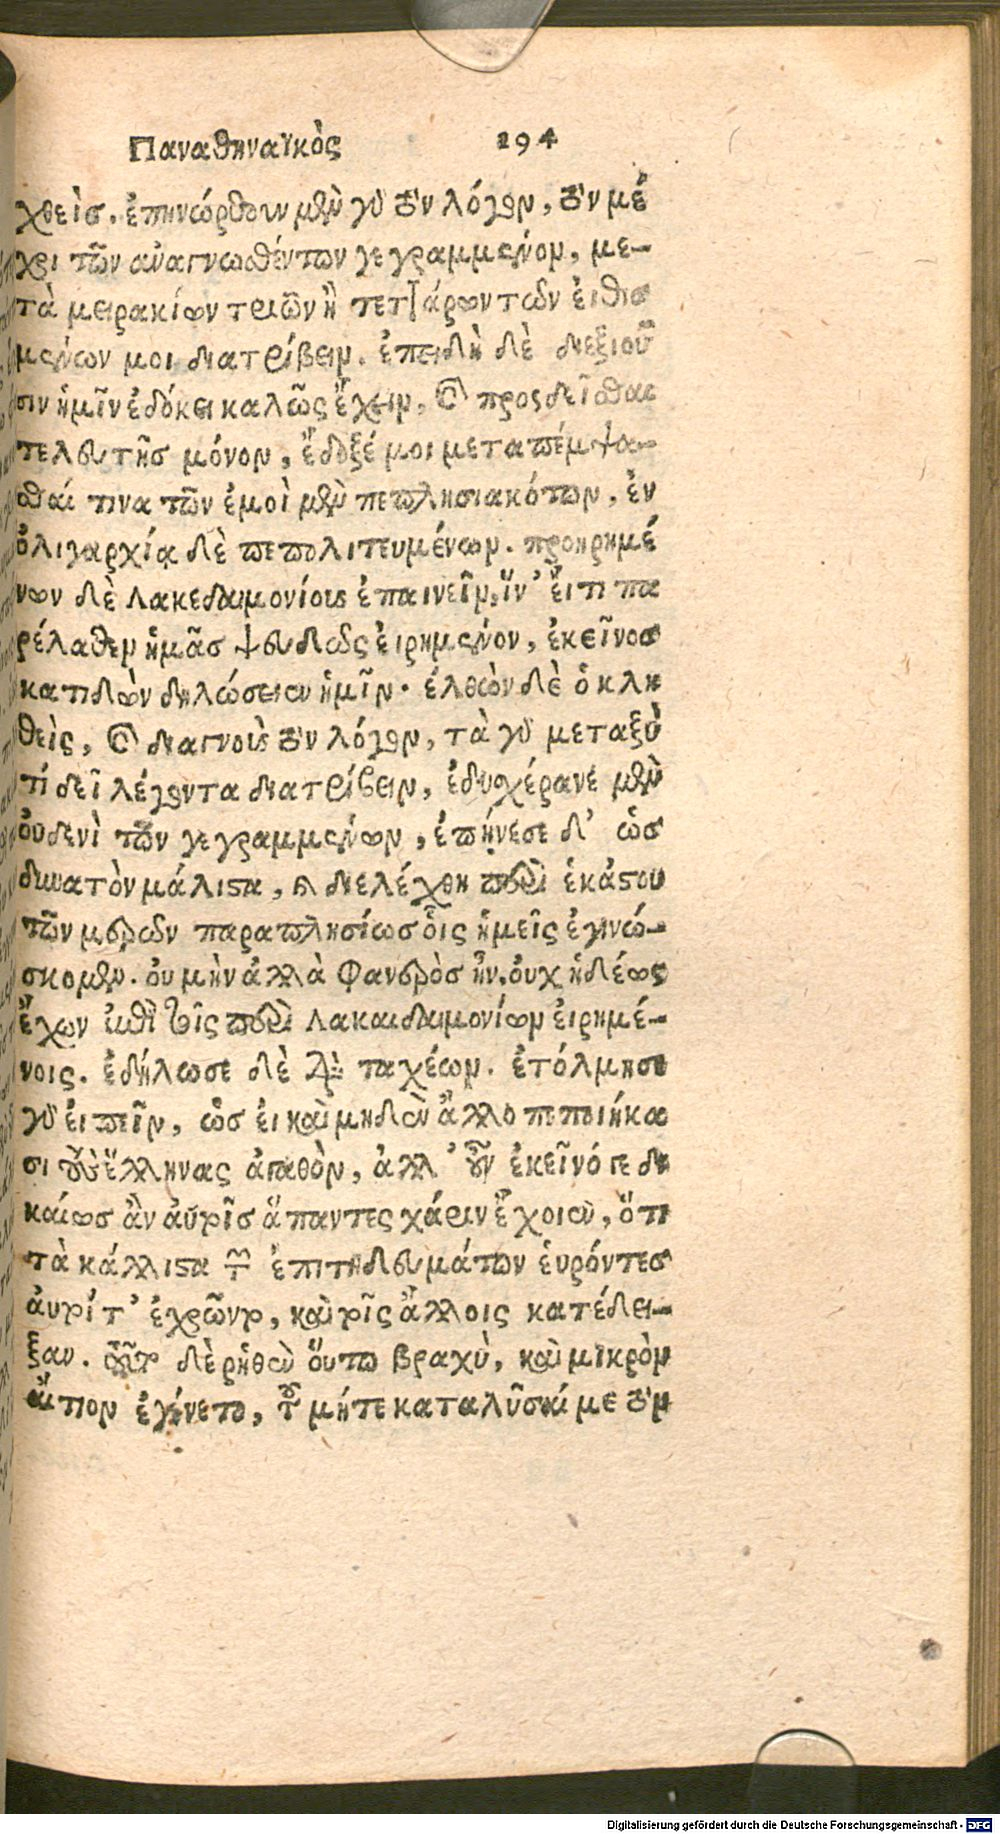 Παναθηναϊκὸς 294
χθείς. ἐπηνώρθουν μὲν γὸ τὸν λόγον, τὸν μέ
χρι τῶν ἀναγνωσθέντων γεγραμμένον, με-
τὰ μειρακίων τριῶν ἢ τετϳάρων τῶν εἰθισ
μένων μοι διατρίβειν. ἐπειδὴ δὲ διεξιοῦ
σιν ἡμῖν ἐδόκει καλῶς ἔχειν, καὶ προςδεῖσθαι
τελευτῆς μόνον, ἔδοξέ μοι μεταπέμψα-
σθαί τινα τῶν ἐμοὶ μὲν πεπλησιακότων, ἐν
ὀλιγαρχίᾳ δὲ πεπολιτευμένων. προηρημέ
νων δὲ Λακεδαιμονίους ἐπαινεῖν, ἵν' εἴ τι πα
ρέλαθεν ἡμᾶς ψευδῶς εἰρημένον, ἐκεῖνος
κατιδὼν δηλώσειεν ἡμῖν· ἐλθὼν δὲ ὁ κλη
θεὶς, καὶ διαγνοὺς τὸν λόγον, τὰ γὸ μεταξὺ
τί δεῖ λέγοντα διατρίβειν, ἐδυχέρανε μὲν
οὐδενὶ τῶν γεγραμμένων, ἐπῄνεσε δ' ὡς
δυνατὸν μάλιστα, καὶ διελέχθη περὶ ἑκάστου
τῶν μερῶν παραπλησίως οἷς ἡμεῖς ἐγινώ-
σκομεν. οὐ μὴν ἀλλὰ φανερὸς ἦν, οὐχ ἡδέως
ἔχων ἐπὶ τοῖς περὶ Λακαιδαιμονίων εἰρημέ-
νοις. ἐδήλωσε δὲ διὰ ταχέων. ἐτόλμησε
γὸ εἰπεῖν, ὡς εἰ καὶ μηδὲν ἄλλο πεποιήκα
σι τοὺς ἕλληνας ἀγαθὸν, ἀλλ' οὖν ἐκεῖνό γε δι
καίως ἂν αὐτοῖς ἅπαντες χάριν ἔχοιεν, ὅτι
τὰ κάλλιστα τῶν ἐπιτηδευμάτων εὑρόντες
αὐτοί τ' ἐχρῶντο, καὶ τοῖς ἄλλοις κατέδει-
ξαν. τοῦτο δὲ ῥηθὲν οὕτω βραχὺ, καὶ μικρὸν
αἴτιον ἐγένετο, τοῦ μήτε καταλῦσαί με τὸν
Digitalisierung gefördert durch die Deutsche Forschungsgemeinschaft - DFG